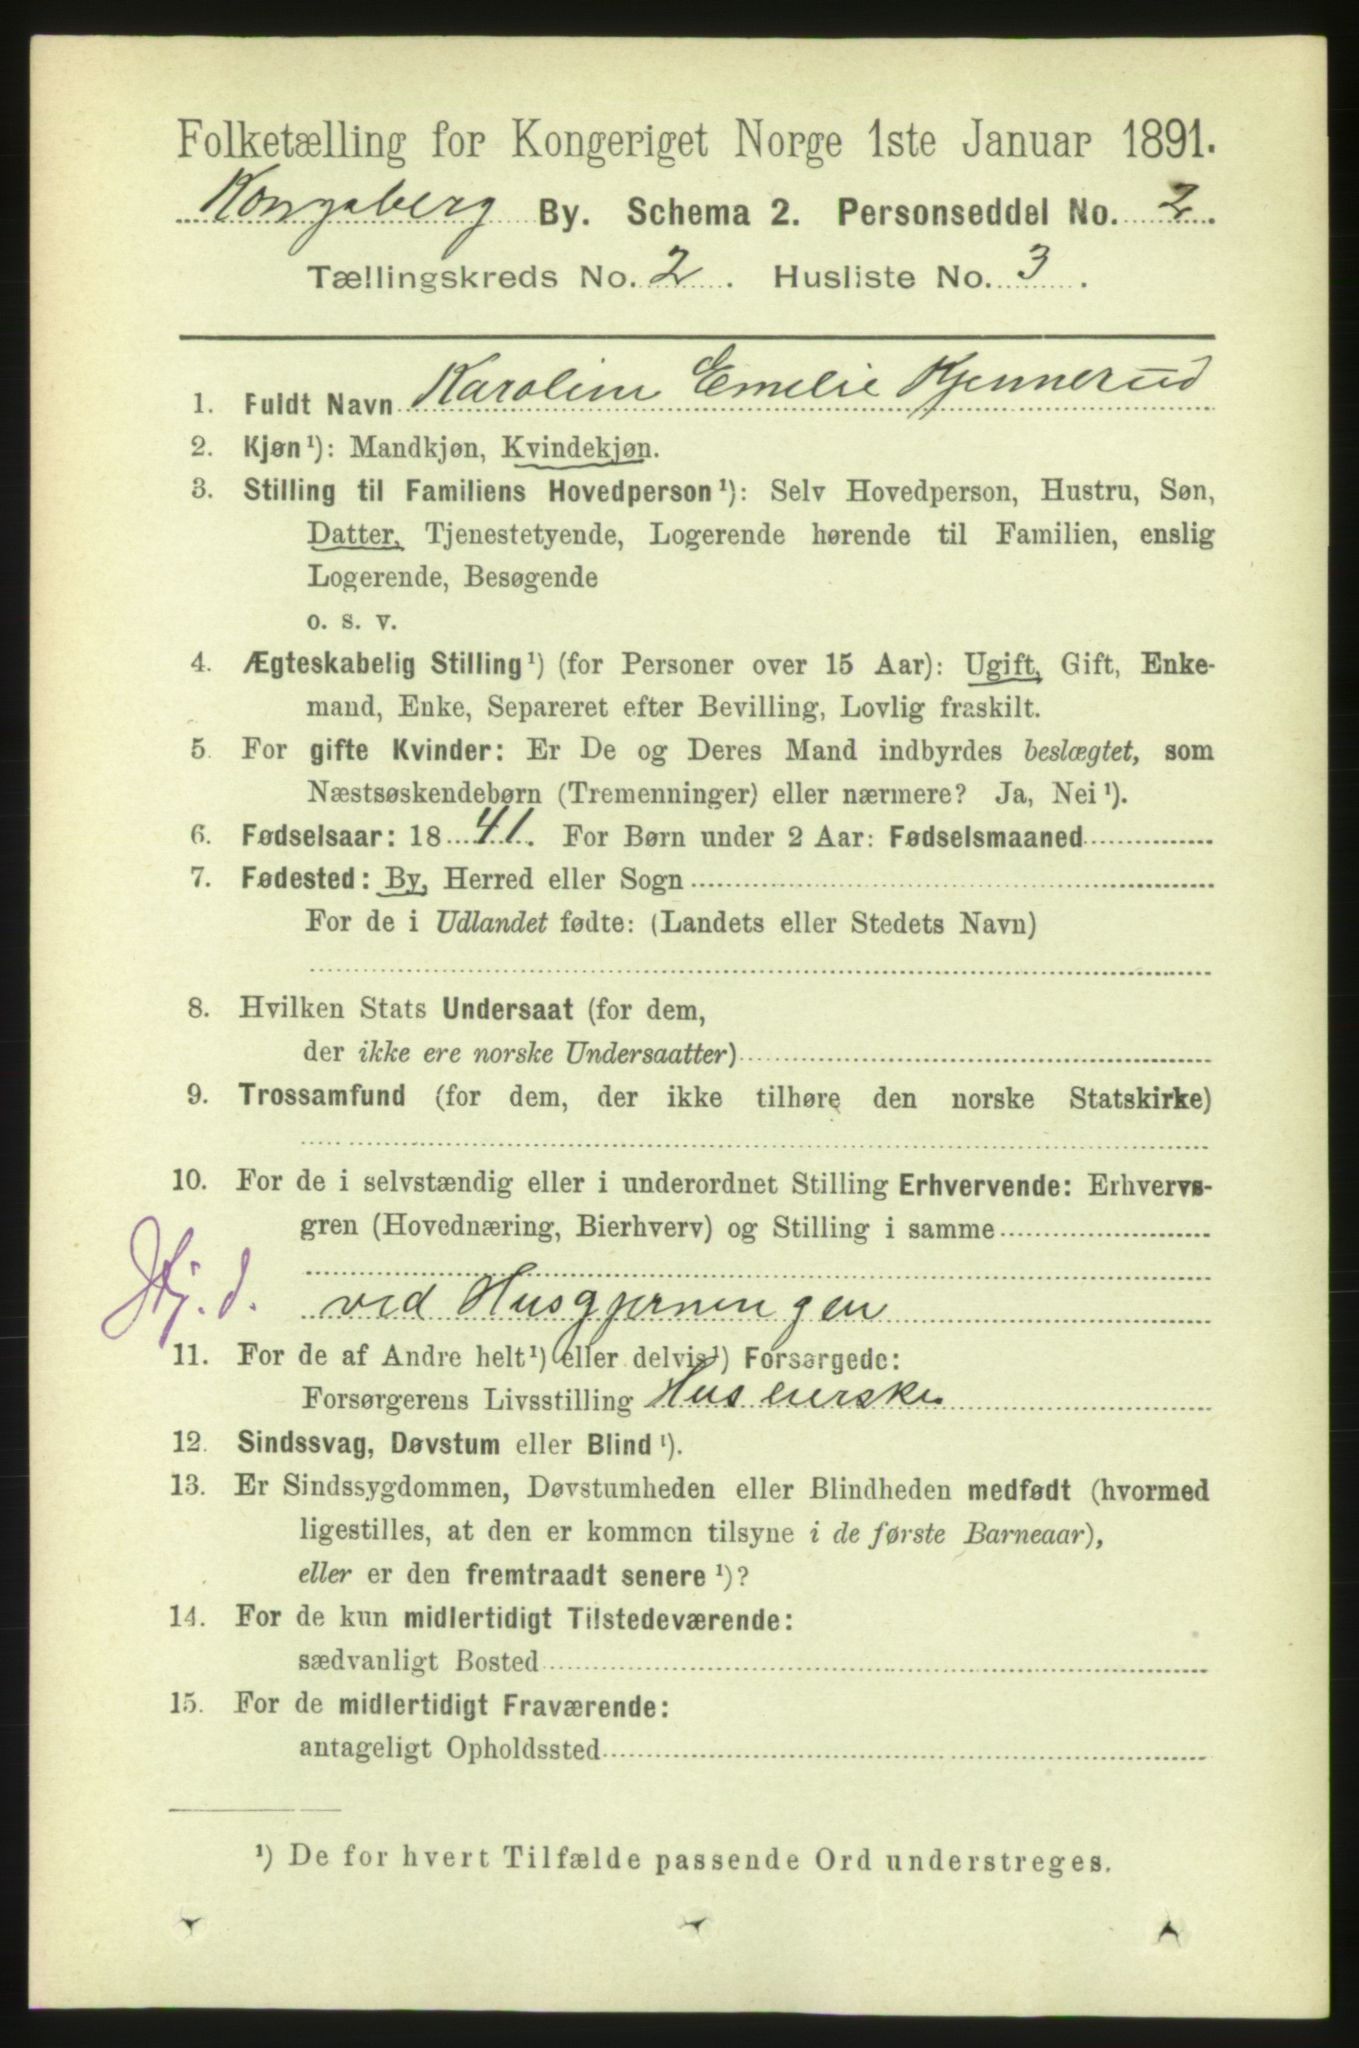 Folketælling for Kongeriget Norge 1ste Januar 1891.
Kongsberg By. Schema 2. Personseddel No. 2.
Tællingskreds No. 2. Husliste No. 3.
1. Fuldt Navn Karoline Emelie Kjennerud
2. Kjøn¹): Mandkjøn, Kvindekjøn.
3. Stilling til Familiens Hovedperson¹): Selv Hovedperson, Hustru, Søn,
Datter, Tjenestetyende, Logerende hørende til Familien, enslig
Logerende, Besøgende
o. s. v.
4. Ægteskabelig Stilling¹) (for Personer over 15 Aar): Ugift, Gift, Enke-
mand, Enke, Separeret efter Bevilling, Lovlig fraskilt.
5. For gifte Kvinder: Er De og Deres Mand indbyrdes beslægtet, som
Næstsøskendebørn (Tremenninger) eller nærmere? Ja, Nei¹).
6. Fødselsaar: 1841. For Børn under 2 Aar: Fødselsmaaned
7. Fødested: By, Herred eller Sogn
For de i Udlandet fødte: (Landets eller Stedets Navn)
8. Hvilken Stats Undersaat (for dem,
der ikke ere norske Undersaatter)
9. Trossamfund (for dem, der ikke tilhøre den norske Statskirke)
10. For de i selvstændig eller i underordnet Stilling Erhvervende: Erhvervs-
gren (Hovednæring, Bierhverv) og Stilling i samme
Hj. d. ved Husgjerningen
11. For de af Andre helt¹) eller delvis¹) Forsørgede:
Forsørgerens Livsstilling Huseierske
12. Sindssvag, Døvstum eller Blind¹).
13. Er Sindssygdommen, Døvstumheden eller Blindheden medfødt (hvormed
ligestilles, at den er kommen tilsyne i de første Barneaar),
eller er den fremtraadt senere¹)?
14. For de kun midlertidigt Tilstedeværende:
sædvanligt Bosted
15. For de midlertidigt Fraværende:
antageligt Opholdssted
¹) De for hvert Tilfælde passende Ord understreges.